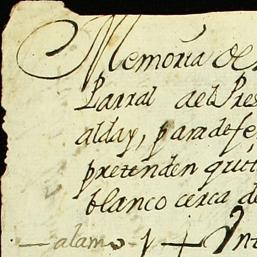 Memoria de
Parral del Pres
alday, para defe
pretenden quit
blanco cerca de
alamo y